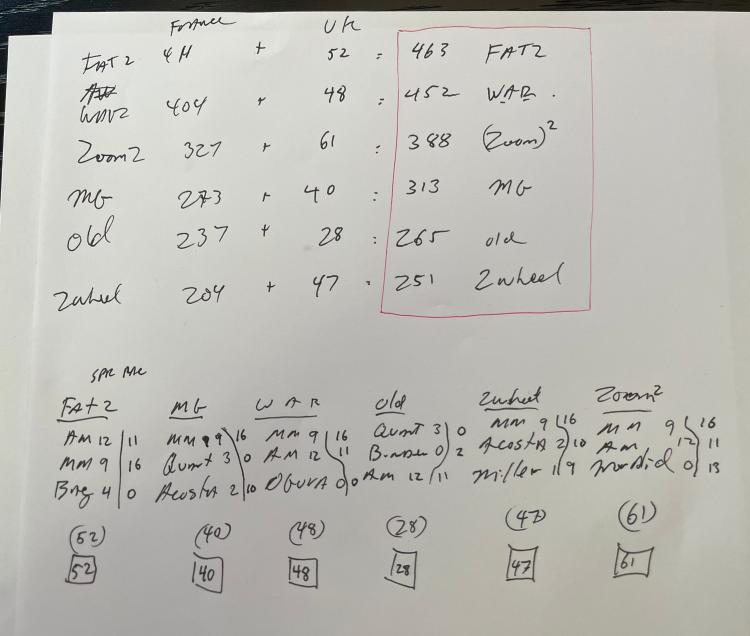 France UK
FAT2 411 + 52 = 463 FAT2
WAR2 404 + 48 = 452 WAR.
Zoom2 327 + 61 = 388 (Zoom)²
MG 273 + 40 = 313 MG
old 237 + 28 = 265 old
2wheel 204 + 47 = 251 2wheel
SPR RAC
FAt2 MG WAR old 2wheel Zoom²
AM 12 11 MM 9 16 MM 9 16 Quart 3 0 MM 9 16 MM 9 16
MM 9 16 Quart 3 0 AM 12 11 Binder 0 2 Acosta 2 10 AM 12 11
Bag 4 0 Acosta 2 10 OGURA 0 0 AM 12 11 Miller 1 9 Morbid 0 13
(52) (40) (48) (28) (47) (61)
52 40 48 28 47 61